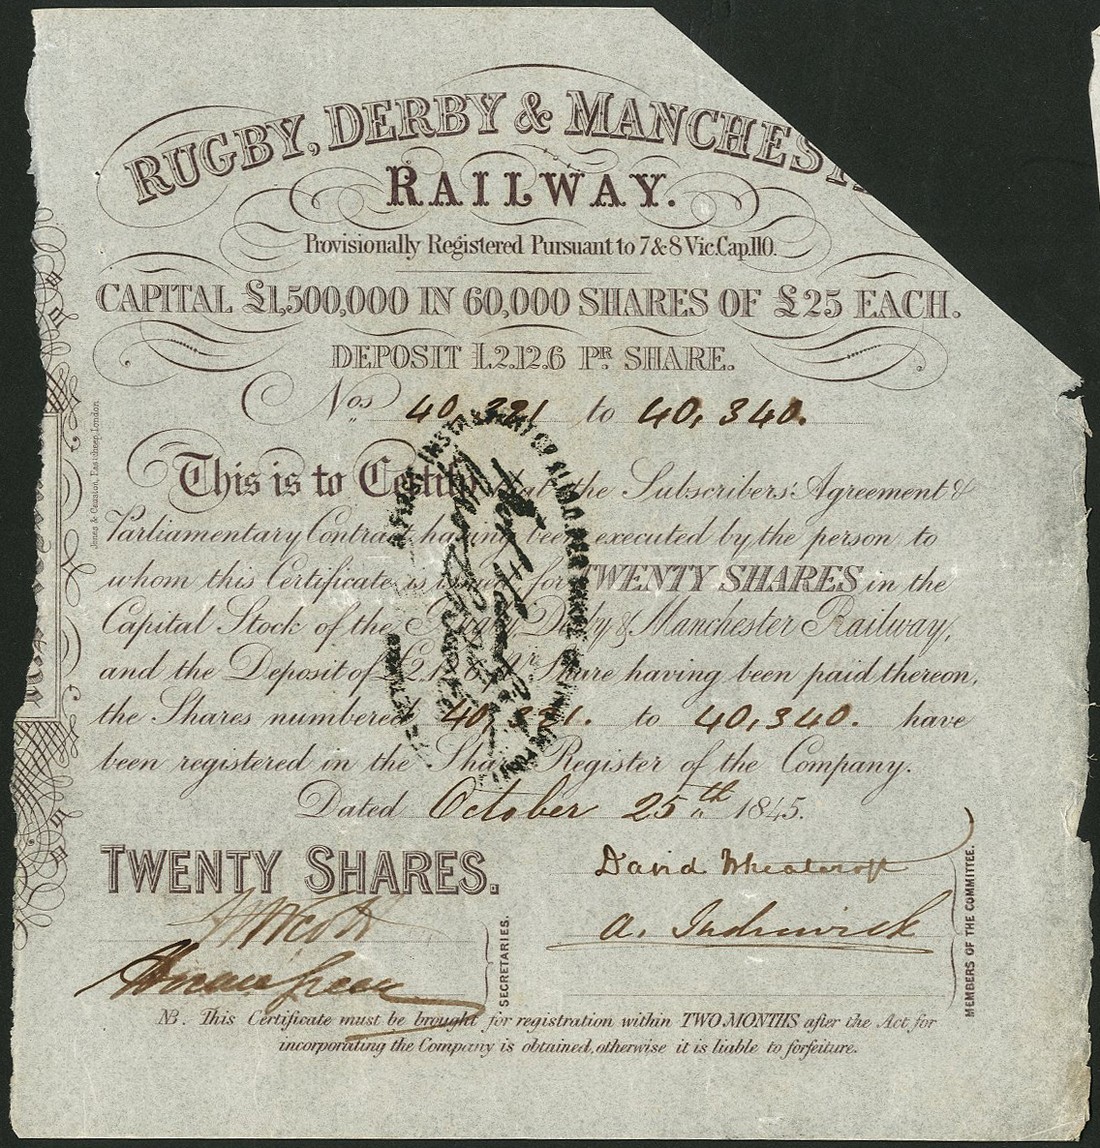 RUGBY, DERBY & MANCHEST
RAILWAY.
Provisionally Registered Pursuant to 7 & 8 Vic. Cap. 110.
CAPITAL £1,500,000 IN 60,000 SHARES OF £25 EACH.
DEPOSIT £2.12.6 PR. SHARE.
Nos 40,321 to 40,340.
This is to Certify that the Subscribers' Agreement &
Parliamentary Contract having been executed by the person to
whom this Certificate is issued for TWENTY SHARES in the
Capital Stock of the Rugby Derby & Manchester Railway,
and the Deposit of £2.12.6 Pr Share having been paid thereon,
the Shares numbered 40,321. to 40,340. have
been registered in the Share Register of the Company.
Dated October 25th 1845.
TWENTY SHARES.
David Wheatcroft
A. Inderwick
SECRETARIES.
MEMBERS OF THE COMMITTEE.
NB. This Certificate must be brought for registration within TWO MONTHS after the Act for
incorporating the Company is obtained, otherwise it is liable to forfeiture.
Jones & Causton, Eastcheap, London.
FIRST INSTALMENT OF
PER SHARE